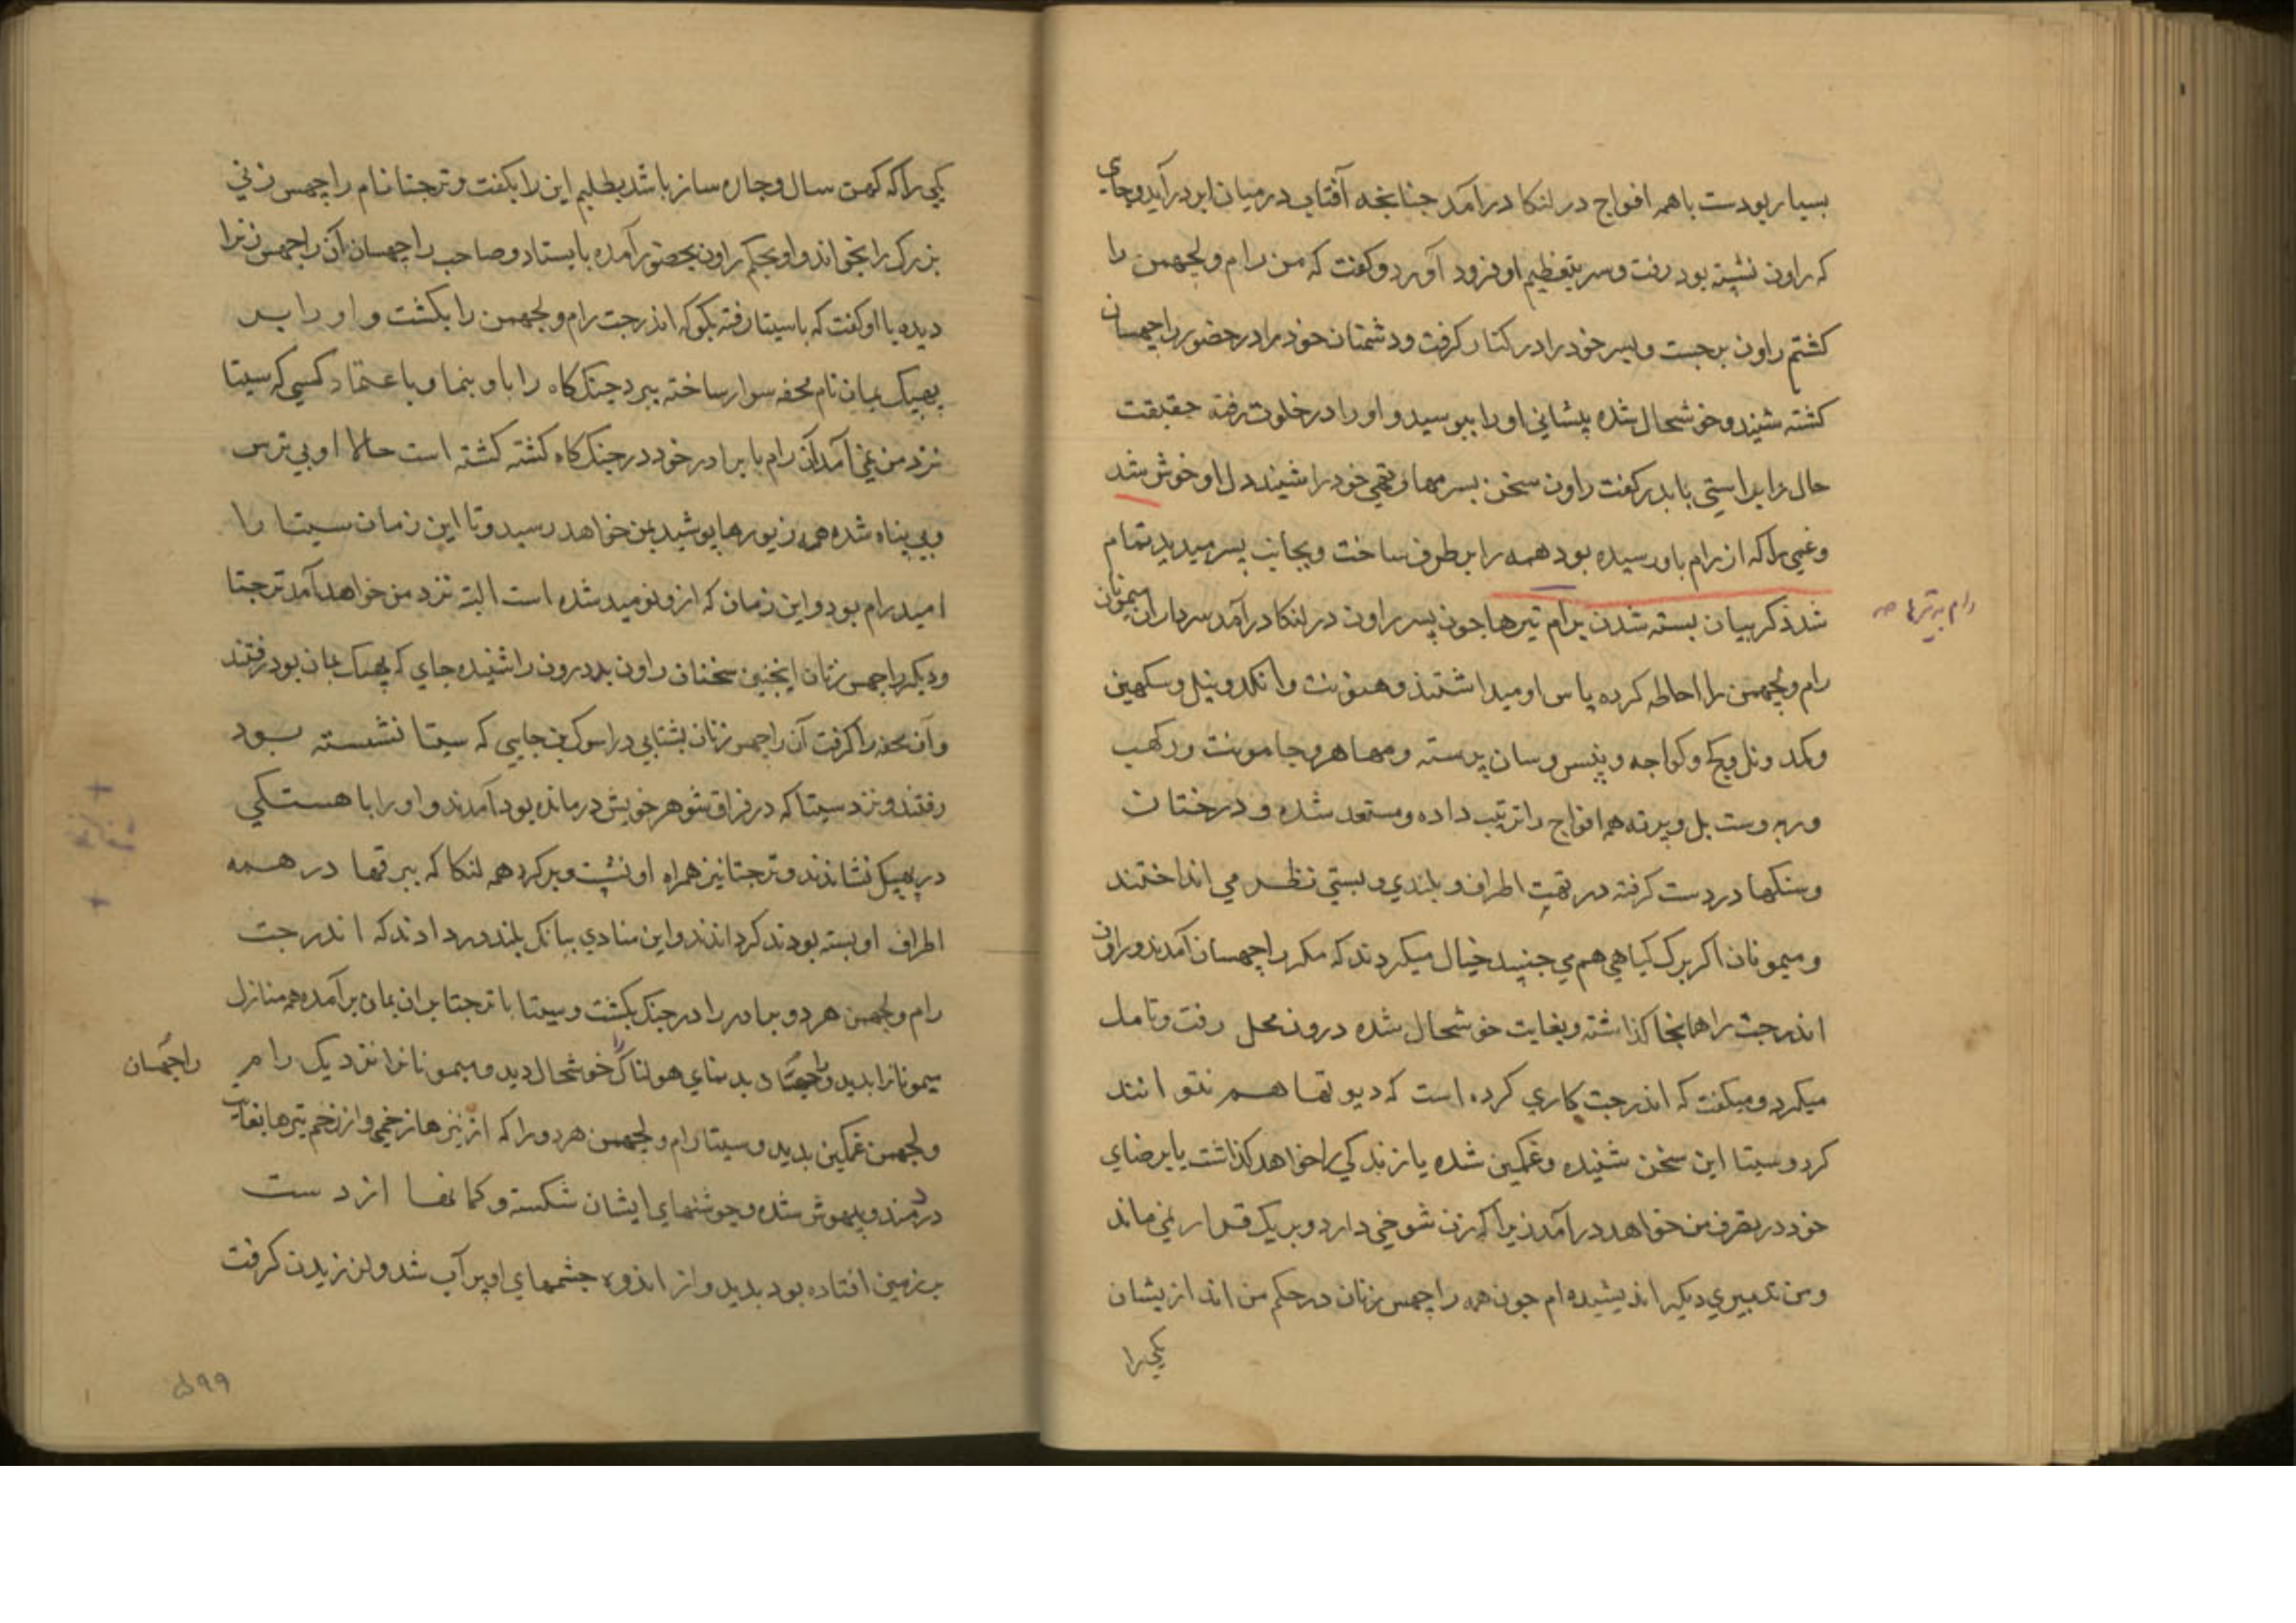 بسیار بودست باهمه افواج در لنکا درآمد جنانچه آفتاب در میان ابر درآید و جای
که راون نشیته بود رفت و سر بتعظیم او فرود آورد و کفت که من رام و لچهمن را
کشتم راون برجست و پسر خود را در کنار کرفت و دشمنان خود را در حضور راچهسان
کشته شنید و خوشحال شده پیشانی او را ببوسید و او را در خلوت رفته حقیقت
حال را براستی با پدر کفت راون سخن پسر مهارتهی خود را شنید دل او خوش شد
و غمی را که از رام باو رسیده بود همه را بر طرف ساخت و بجانب پسر میدید تمام
شد ذکر بیان بسته شدن برام تیرها جون پسر راون در لنکا درآمد سرداران میمونان
رام به تیرها صه
رام و لچهمن را احاطه کرده پاس او میداشتند و هنونت و انکد و نیل و سکهین
و کمد و نل و کج و کواجه و پنس و سان پرسته و مهاهر و جامونت و رکهب
و ربروست بل و پرته همه افواج را ترتیب داده و مستعد شده و درختان
و سنکها در دست کرفته در تهیت اطراف و بلندی و پستی نظر می انداختند
و میمونان اکر برک کیاهی هم می جنبید خیال میکردند که مکر راچهسان آمدند و راون
اندرجت را همانجا کذاشته و بغایت خوشحال شده درون محل رفت و تامل
میکرد و میکفت که اندرجت کاری کرده است که دیوتها هم نتوانند
کرد و سیتا این سخن شنیده و غمکین شده یا زندکی را خواهد کذاشت یا برضای
خود در تصرف من خواهد درآمد زیرا که زن شوخی دارد و بر یک قرار نمی ماند
و من تدبیری دیکر اندیشیده ام جون همه راچهس زنان در حکم من اند از یشان
یکی را
یکی را که کهن سال و جاره ساز باشد بطلبم این را بکفت و ترجتا نام راچهس زنی
بزرک را بخواند و او بحکم راون بحضور آمده بایستاد و صاحب راچهسان آن راچهس زنرا
دیده با او کفت که با سیتا رفته بکو که اندرجت رام و لچهمن را بکشت و او را بر
پهپک بمان نام محفه سوار ساخته ببر د جنک کاه را باو بنما و باعتماد کسی که سیتا
نزد من نمی آمد آن رام با برادر خود در جنک کاه کشته کشته است حالا او بی ترس
و بی پناه شده همه زیورها پوشید بمن خواهد رسید و تا این زمان سیتا را
امید رام بود و این زمان که ازو نومید شده است البته نزد من خواهد آمد ترجتا
و دیکر راچهس زنان اینجنین سخنان راون بد درون را شنیده جای که پهپک بمان بود رفتند
و آن محفه را کرفت آن راچهس زنان بشتابی در اسوک بن جایی که سیتا نشسته بود
رفتند و نزد سیتا که در فراق شوهر خویش درمانده بود آمدند و او را باهستکی
در پهپک نشاندند و ترجتا نیز همراه او نشست و برکرد همه لنکا که بیرقها در همه
اطراف او بسته بودند کرداندند و این منادی ببانک بلند در دادند که اندرجت
رام و لچهمن هر دو برادر را در جنک بکشت و سیتا با ترجتا بران بمان برآمده همه منازل
میمونانرا بدید و راچهسان بدینای هولناک را خوشحال دید و میمونانرا نزدیک رام
راچهسان
و لچهمن غمکین بدید و سیتا رام و لچهمن هر دو را که از تیرها زخمی و از زخم تیرها بغایت
دردمند و بیهوش شده و جوشنهای ایشان شکسته و کمانها از دست
بر زمین افتاده بود بدید و از اندوه جشمهای او پر آب شد و لرزیدن کرفت